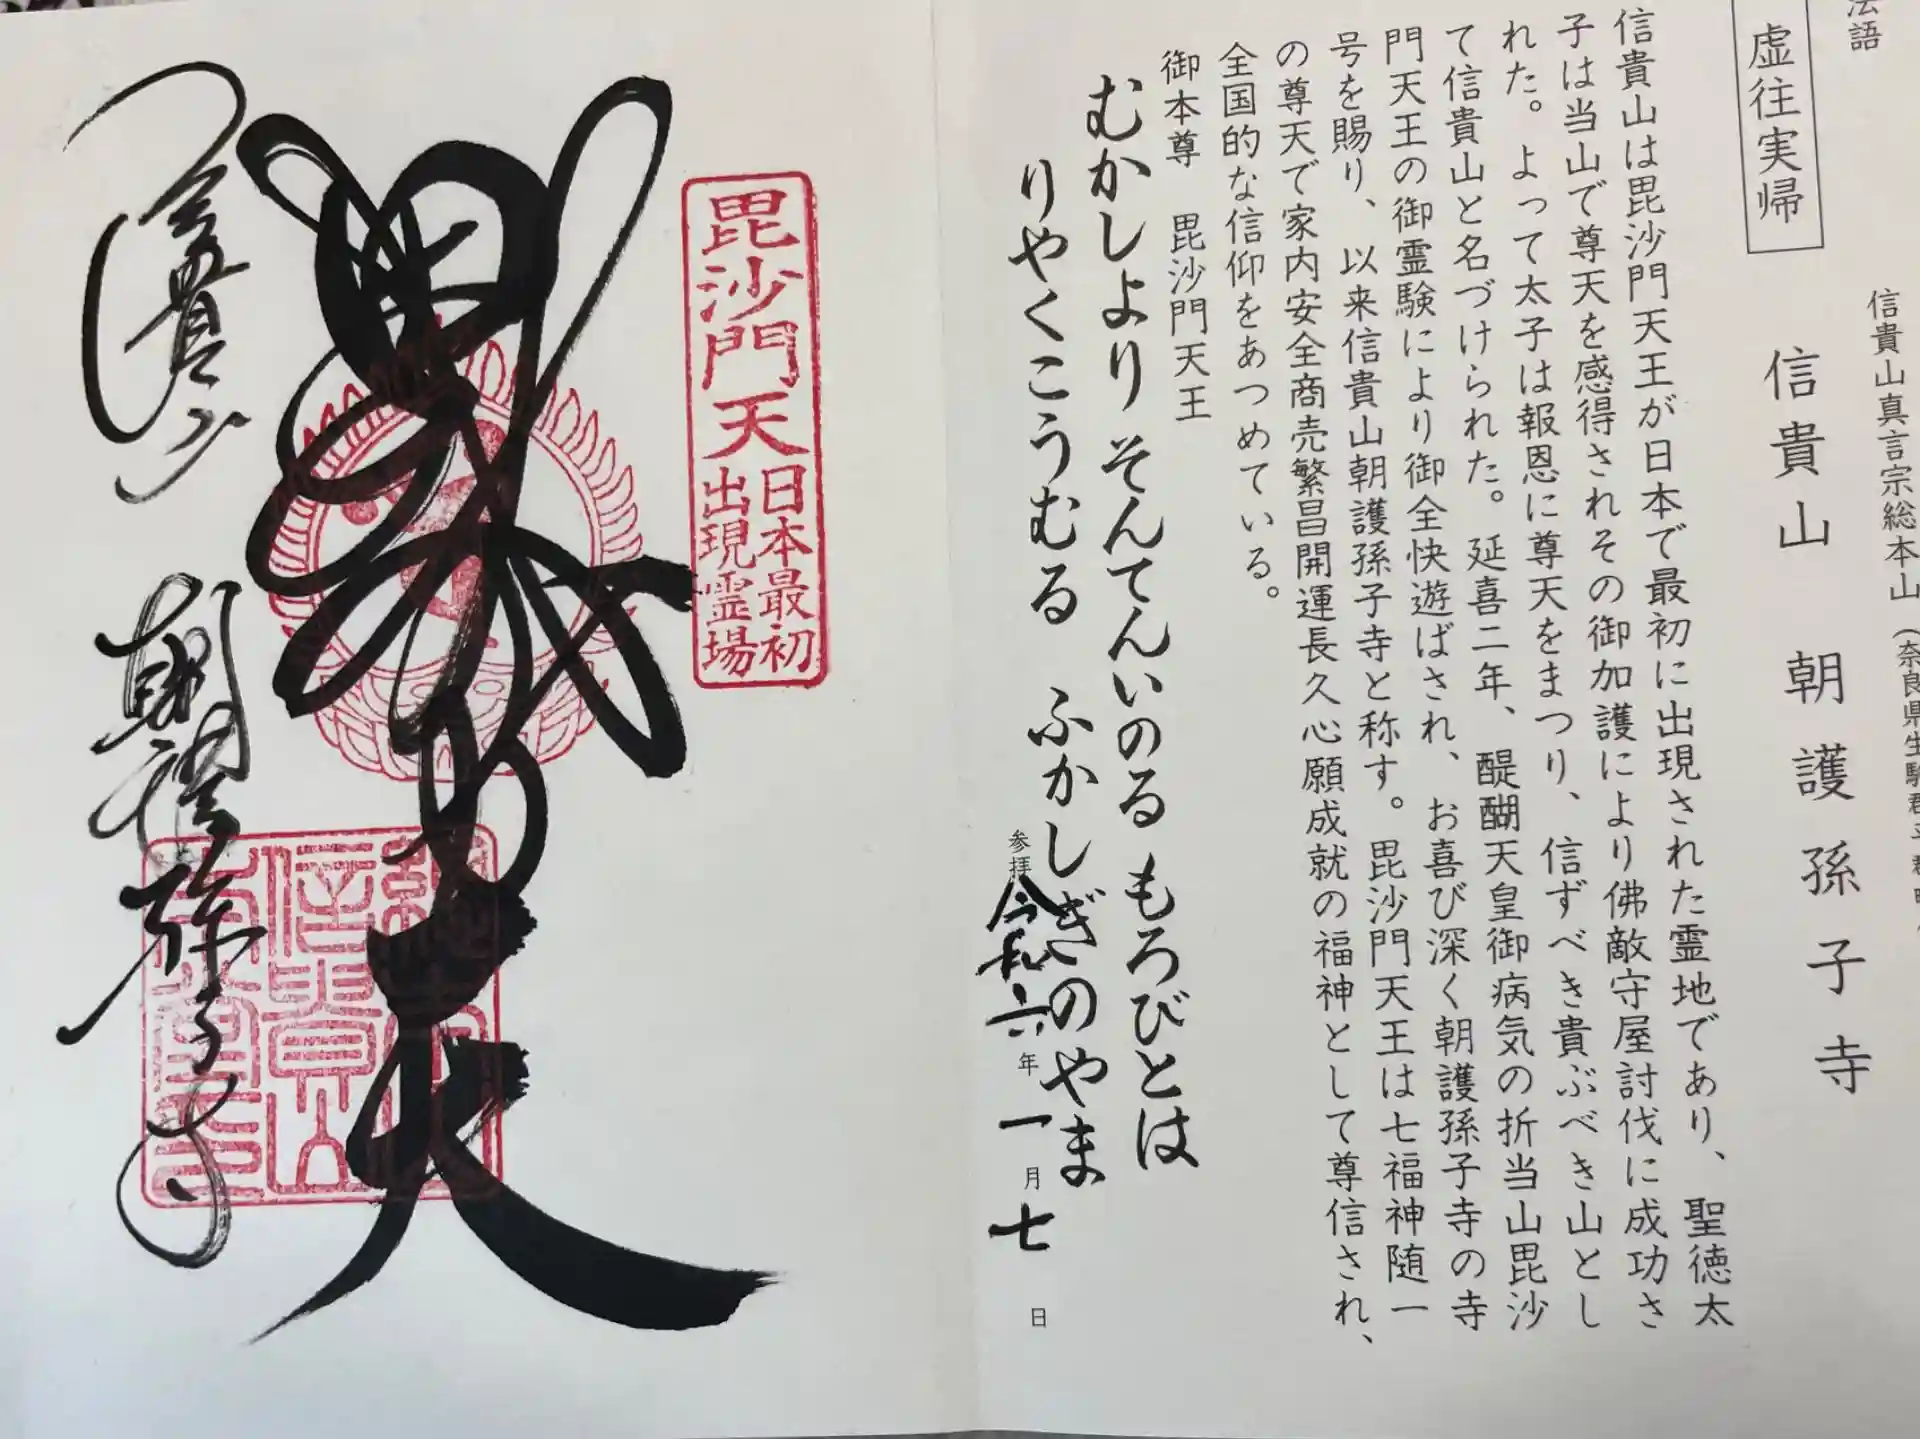 法語
虚往実帰
信貴山真言宗総本山(奈良県生駒郡平群町
信貴山 朝護孫子寺
信貴山は毘沙門天王が日本で最初に出現された霊地であり、聖徳太
子は当山で尊天を感得されその御加護により佛敵守屋討伐に成功さ
れた。よって太子は報恩に尊天をまつり、信ずべき貴ぶべき山とし
て信貴山と名づけられた。延喜二年、醍醐天皇御病気の折当山毘沙
門天王の御霊験により御全快遊ばされ、お喜び深く朝護孫子寺の寺
号を賜り、以来信貴山朝護孫子寺と称す。毘沙門天王は七福神随一
の尊天で家内安全商売繁昌開運長久心願成就の福神として尊信され、
全国的な信仰をあつめている。
御本尊 毘沙門天王
むかしより そんてんいのる もろびとは
りやくこうむる ふかしぎのやま
参拝 令和六年一月七日
毘沙門天
日本最初
出現霊場
毘沙門天
信貴山 朝護孫子寺